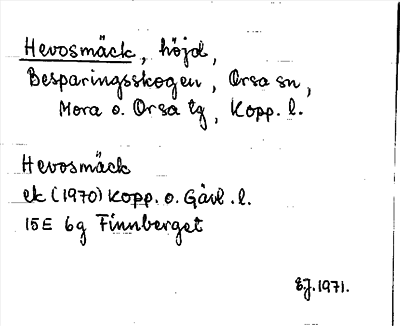 Hevosmäck, höjd,
Besparingsskogen, Orsa sn,
Mora o. Orsa tg, Kopp. l.
Hevosmäck
ek (1970) Kopp. o. Gävl. l.
15E 6g Finnberget
E.J. 1971.